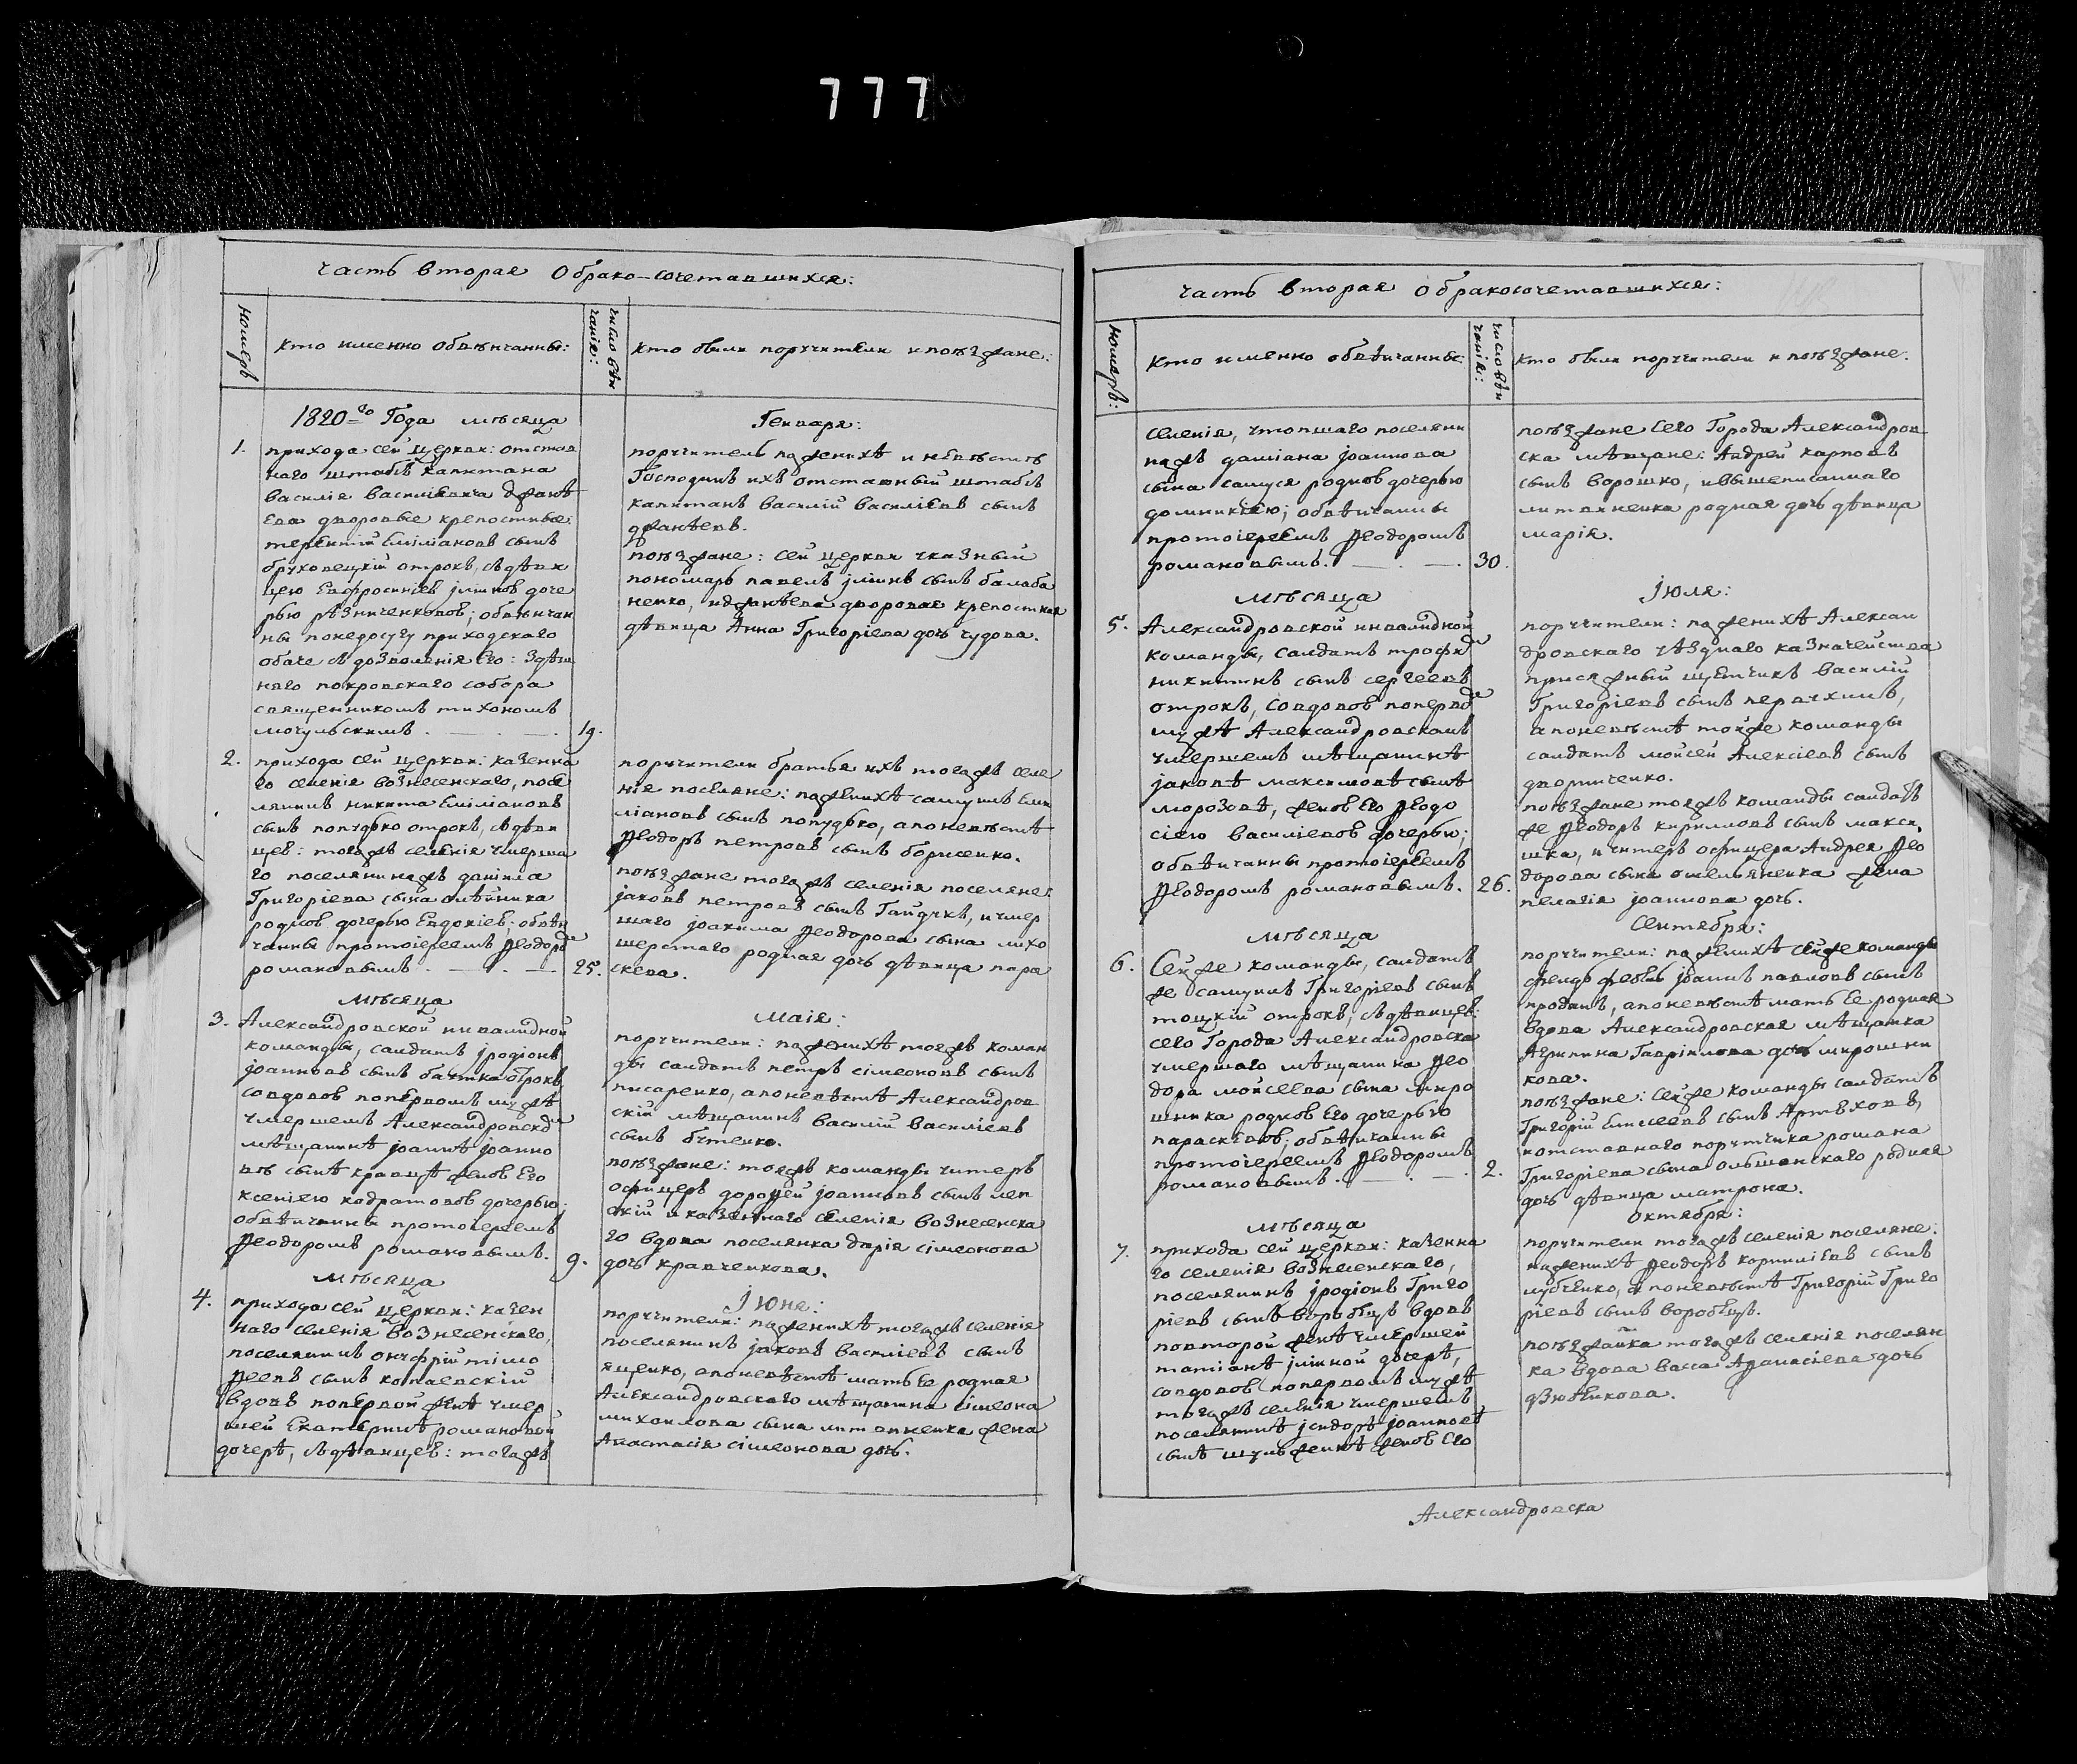 777
часть вторая Обрако-сочетавшихся:
номеръ
кто именно обвѣнчанны:
число вѣн
чанія:
кто были поручители и поѣзжане:
1820го Года мѣсяца
Генваря:
1. прихода сей церкви: отстав
наго штабсъ капитана
василія василіевича
Ева дворовые крепостные:
терентій Еміліановъ сынъ
отрокъ, съ дѣви
цею Евфросиніею доче
рью обвѣнчан
ны приходскаго
обаче съ дозволенія Его: здѣш
няго покровскаго собора
священникомъ тихономъ
мочульскимъ. 19.
поручитель по женихѣ и невѣстѣ
Господинъ ихъ отставный штабсъ
капитанъ василій василіевъ сынъ
поѣзжане: сей церкви указный
пономарь павелъ сынъ балаба
ненко, дворовая крепостная
дѣвица Анна Григоріева дочь чудова.
2. прихода сей церкви: казенна
го селенія вознесенскаго, посе
лянинъ никита Еміліановъ
сынъ попудько отрокъ, съ дѣви
цею: тогожъ селенія умерша
го поселянина жъ даніила
Григоріева сына олѣйника
родною дочерью Евдокіею; обвѣн
чанны протоіереемъ Ѳеодоромъ
романовымъ. 25.
поручители братья ихъ тогожъ селе
нія поселяне: по женихѣ самуилъ Еми
ліановъ сынъ попудько, а по невѣстѣ
Ѳеодоръ петровъ сынъ борисенко.
поѣзжане тогожъ селенія поселяне:
яковъ петровъ сынъ Гайдукъ, и умер
шаго іоакима Ѳеодорова сына лихо
шерстаго родная дочь дѣвица пара
скева.
мѣсяца
маія:
3. Александровской инвалидной
команды, салдатъ іродіонъ
іоанновъ сынъ отрокъ,
со вдовою по первомъ мужѣ
умершемъ Александровскомъ
мѣщанинѣ іоаннѣ іоанно
вѣ сынѣ кравцѣ женою Его
ксеніею кодратовою дочерью;
обвѣнчанны протоіереемъ
Ѳеодоромъ романовымъ. 9.
поручители: по женихѣ тоежъ коман
ды салдатъ петръ сімеоновъ сынъ
писаренко, а по невѣстѣ Александров
скій мѣщанинъ василій василіевъ
сынъ бутенко.
поѣзжане: тоежъ команды унтеръ
офицеръ дороѳей іоанновъ сынъ леп
скій и казеннаго селенія вознесенска
го вдова поселянка дарія сімеонова
дочь кравченкова.
мѣсяца
Іюне:
4. прихода сей церкви: казен
наго селенія вознесенскаго,
поселянинъ онуфрій тімо
ѳеевъ сынъ копаевскій
вдовъ по первой женѣ умер
шей Екатеринѣ романовой
дочерѣ, съ дѣвицею: тогожъ
поручители: по женихѣ тогожъ селенія
поселянинъ іаковъ василіевъ сынъ
яценко, а по невѣстѣ мать Ее родная
Александровскаго мѣщанина сімеона
михайлова сына литвиненка жена
Анастасія сімеонова дочь.
часть вторая Обракосочетавшихся:
номеръ:
Кто именно обвѣнчанны:
число вѣн
чанія:
Кто были поручители и поѣзжане.
селенія, умершаго поселяни
на жъ даміана іоаннова
сына самуся родною дочерью
домникіею; обвѣнчанны
протоіереемъ Ѳеодоромъ
романовымъ. 30.
поѣзжане сего Города Александров
ска мѣщане: Андрей карповъ
сынъ ворошко, и вышеписаннаго
литвиненка родная дочь дѣвица
марія.
мѣсяца
Іюля:
5. Александровской инвалидной
команды, салдатъ трофимъ
никитинъ сынъ сергеевъ
отрокъ, со вдовою по первомъ
мужѣ Александровскомъ
умершемъ мѣщанинѣ
іаковѣ максимовѣ сынѣ
морозовѣ, женою Его Ѳеодо
сіею василіевою дочерью;
обвѣнчанны протоіереемъ
Ѳеодоромъ романовымъ. 26.
поручители: по женихѣ Алексан
дровскаго уѣзднаго казначейства
присяжный щетчикъ василій
Григоріевъ сынъ
а по невѣстѣ тойже команды
салдатъ мойсей Алексіевъ сынъ
дворниченко.
поѣзжане тоежъ команды салдатъ
же Ѳеодоръ кирилловъ сынъ макси
шка, и унтеръ офицера Андрея Ѳео
дорова сына омельяненка жена
пелагія іоаннова дочь.
мѣсяца
Сентября:
6. Сейже команды, салдатъ
же самуилъ Григоріевъ сынъ
тоцкій отрокъ, съ дѣвицею:
сего Города Александровска
умершаго мѣщанина Ѳео
дора мойсеева сына миро
шника родною Его дочерью
параскевою; обвѣнчанны
протоіереемъ Ѳеодоромъ
романовымъ. 2.
поручители: по женихѣ сейже команды
фельдфебель іоаннъ павловъ сынъ
а по невѣстѣ мать Ее родная
вдова Александровская мѣщанка
Агрипина Гавріилова дочь мирошни
кова.
поѣзжане: сейже команды салдатъ
Григорій Елисеевъ сынъ Артюховъ,
и отставнаго порутчика романа
Григоріева сына ольшанскаго родная
дочь дѣвица матрона.
мѣсяца
октября:
7. прихода сей церкви: казенна
го селенія вознесенскаго,
поселянинъ іродіонъ Григо
ріевъ сынъ воробецъ вдовъ
по второй женѣ умершей
татіанѣ іліиной дочерѣ,
со вдовою по первомъ мужѣ
тогожъ селенія умершемъ
поселянинѣ ісидорѣ іоанновѣ
сынѣ женою Его
поручители тогожъ селенія поселяне:
по женихѣ Ѳеодоръ корниліевъ сынъ
а по невѣстѣ Григорій Григо
ріевъ сынъ воробецъ.
поѣзжанка тогожъ селенія поселян
ка вдова васса Аѳанасіева дочь
дзюбенкова.
Александровска